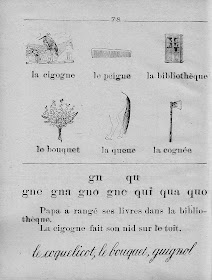 78
la cigogne le peigne la bibliothèque
le bouquet la queue la cognée
gn qu
gne gna gno gne qui qua quo
Papa a rangé ses livres dans la biblio-
thèque.
La cigogne fait son nid sur le toit.
le coquelicot, le bouquet, guignol